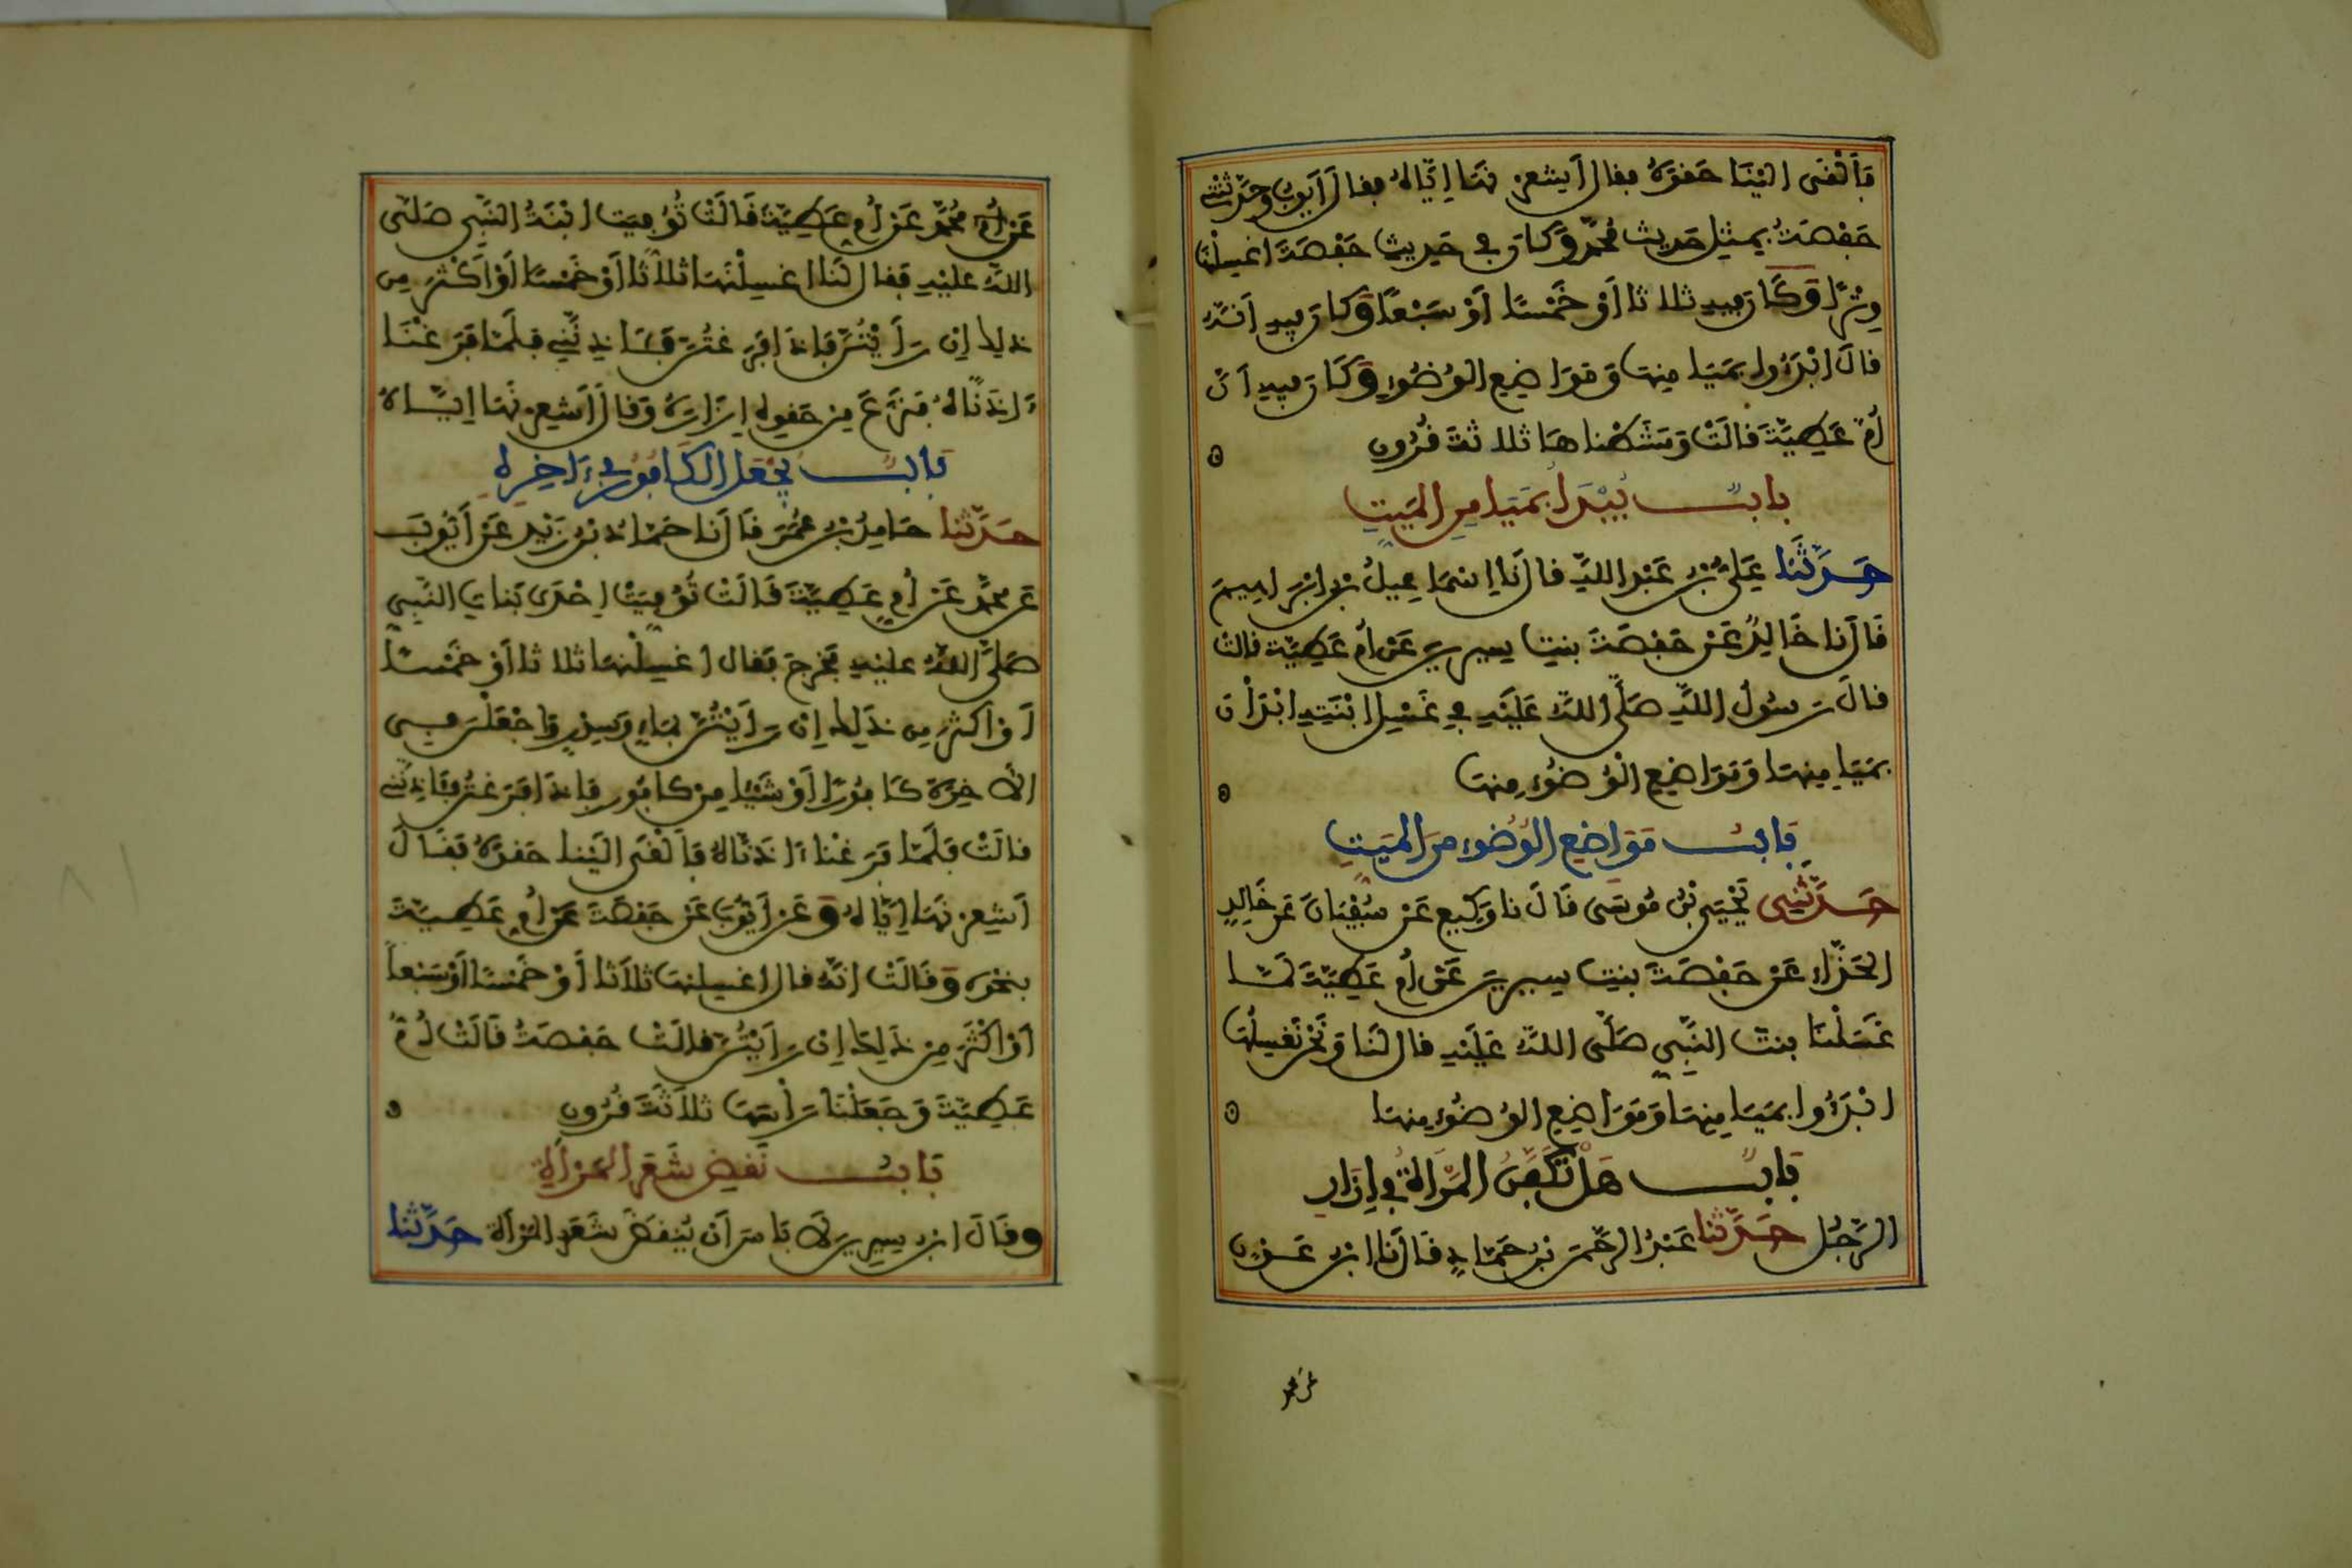 فَأَلْقَى إِلَيْنَا حَقْوَهُ فقال أَشْعِرْنَهَا إِيَّاهُ فقال أَيُّوبُ وحَدَّثَتْنِي
حَفْصَةُ بِمِثْلِ حَدِيثِ مُحَمَّدٍ وَكَانَ فِي حَدِيثِ حَفْصَةَ اغْسِلْنَهَا
وِتْرًا وَكَانَ فِيهِ ثلاثا أَوْ خَمْسًا أَوْ سَبْعًا وَكَانَ فِيهِ أَنَّهُ
قالَ ابْدَءُوا بِمَيَامِنِهَا وَمَوَاضِعِ الْوُضُوءِ وَكَانَ فِيهِ أَنَّ
أُمَّ عَطِيَّةَ قالَتْ وَمَشَطْنَاهَا ثلاثةَ قُرُونٍ
بابٌ يُبْدَأُ بِمَيَامِنِ الْمَيِّتِ
حَدَّثَنَا عَلِيُّ بْنُ عَبْدِ اللَّهِ قالَ نا إِسْمَاعِيلُ بْنُ إِبْرَاهِيمَ
قَالَ نا خَالِدٌ عَنْ حَفْصَةَ بِنْتِ سِيرِينَ عَنْ أُمِّ عَطِيَّةَ قالت
قالَ رَسُولُ اللَّهِ صَلَّى اللَّهُ عَلَيْهِ فِي غَسْلِ ابْنَتِهِ ابْدَأْنَ
بِمَيَامِنِهَا وَمَوَاضِعِ الْوُضُوءِ مِنْهَا
بَابُ مَوَاضِعِ الْوُضُوءِ مِنَ الْمَيِّتِ
حَدَّثَنِي يَحْيَى بْنُ مُوسَى قَالَ نا وَكِيعٌ عَنْ سُفْيَانَ عَنْ خَالِدٍ
الْحَذَّاءِ عَنْ حَفْصَةَ بِنْتِ سِيرِينَ عَنْ أُمِّ عَطِيَّةَ لَمَّا
غَسَلْنَا بِنْتَ النَّبِيِّ صَلَّى اللَّهُ عَلَيْهِ قال لَنَا وَنَحْنُ نَغْسِلُهَا
ابْدَءُوا بِمَيَامِنِهَا وَمَوَاضِعِ الْوُضُوءِ مِنْهَا
بَابٌ هَلْ تُكَفَّنُ الْمَرْأَةُ فِي إِزَارِ
الرَّجُلِ حَدَّثَنَا عَبْدُ الرَّحْمَنِ بْنُ حَمَّادٍ قَالَ نا ابْنُ عَوْنٍ
عن محمد
عَنْ مُحَمَّدٍ عَنْ أُمِّ عَطِيَّةَ قَالَتْ تُوُفِّيَتِ ابْنَةُ النَّبِيِّ صَلَّى
اللَّهُ عَلَيْهِ فَقَالَ لَنَا اغْسِلْنَهَا ثَلَاثًا أَوْ خَمْسًا أَوْ أَكْثَرَ مِن
ذلِكَ إِنْ رَأَيْتُنَّ فَإِذَا فَرَغْتُنَّ فَآذِنَّنِي فَلَمَّا فَرَغْنَا
ءَاذَنَّاهُ فَنَزَعَ مِنْ حَقْوِهِ إِزَارَهُ وَقالَ أَشْعِرْنَهَا إِيَّاهُ
بَابٌ يُجْعَلُ الْكَافُورُ فِي ءَاخِرِهِ
حَدَّثَنَا حَامِدُ بْنُ عُمَرَ قَالَ نا حَمَّادُ بْنُ زَيْدٍ عَنْ أَيُّوبَ
عَنْ مُحَمَّدٍ عَنْ أُمِّ عَطِيَّةَ قَالَتْ تُوُفِّيَتْ إِحْدَى بَنَاتِ النَّبِيِّ
صَلَّى اللَّهُ عَلَيْهِ فَخَرَجَ فَقال اغْسِلْنَهَا ثلاثا أَوْ خَمْسًا
أَوْ أَكْثَرَ مِن ذَلِكَ إِنْ رَأَيْتُنَّ بِمَاءٍ وَسِدْرٍ وَاجْعَلْنَ فِي
الْآخِرَةِ كَافُورًا أَوْ شَيْئًا مِنْ كافُورٍ فَإِذَا فَرَغْتُنَّ فَآذِنَّنِي
قالَتْ فَلَمَّا فَرَغْنَا ءَاذَنَّاهُ فَأَلْقَى إِلَيْنَا حَقْوَهُ فَقَالَ
أَشْعِرْنَهَا إِيَّاهُ وَعَنْ أَيُّوبَ عَنْ حَفْصَةَ عَنْ أُمِّ عَطِيَّةَ
بِنَحْوِهِ وَقَالَتْ إِنَّهُ قال اغْسِلْنَهَا ثَلَاثًا أَوْ خَمْسًا أَوْ سَبْعًا
أَوْ أَكْثَرَ مِنْ ذَلِكَ إِن رَأَيْتُنَّ قالَتْ حَفْصَةُ قَالَتْ أُمُّ
عَطِيَّةَ وَجَعَلْنَا رَأْسَهَا ثَلَاثَةَ قُرُونٍ
بَابُ نَقْضِ شَعَرِ الْمَرْأَةِ
وقَالَ ابْنُ سِيرِينَ لَا بَأْسَ أَنْ يُنْقَضَ شَعَرُ الْمَرْأَةِ حَدَّثَنَا